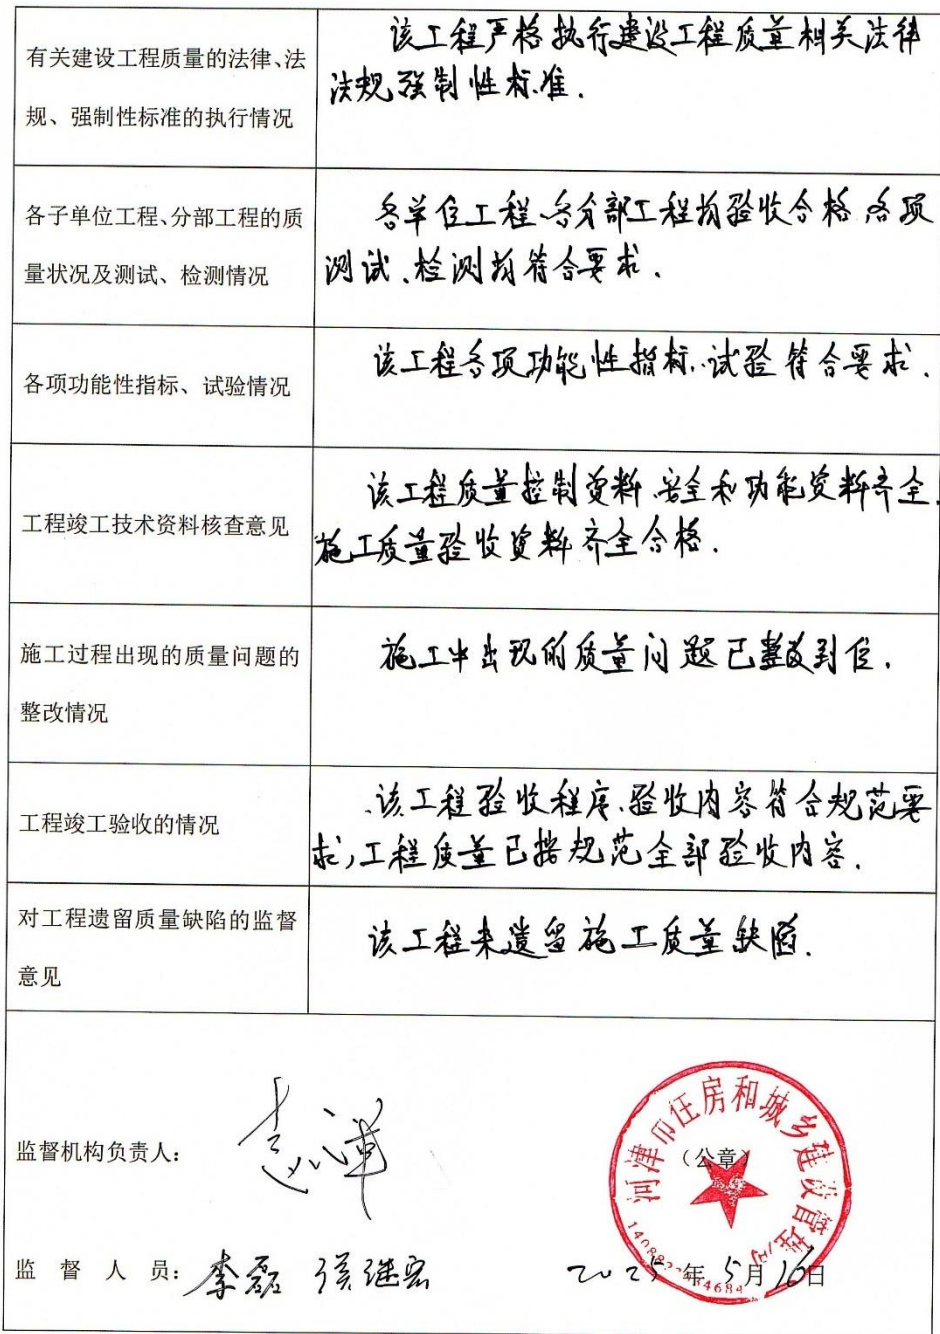 有关建设工程质量的法律、法
规、强制性标准的执行情况
该工程严格执行建设工程质量相关法律
法规强制性标准.
各子单位工程、分部工程的质
量状况及测试、检测情况
各单位工程、各分部工程均验收合格,各项
测试、检测均符合要求.
各项功能性指标、试验情况
该工程各项功能性指标、试验符合要求.
工程竣工技术资料核查意见
该工程质量控制资料、安全和功能资料齐全.
施工质量验收资料齐全合格.
施工过程出现的质量问题的
整改情况
施工中出现的质量问题已整改到位.
工程竣工验收的情况
该工程验收程序、验收内容符合规范要
求,工程质量已按规范全部验收内容.
对工程遗留质量缺陷的监督
意见
该工程未遗留施工质量缺陷.
监督机构负责人:
河津市住房和城乡建设管理局
(公章)
监 督 人 员: 李磊
2025年5月16日